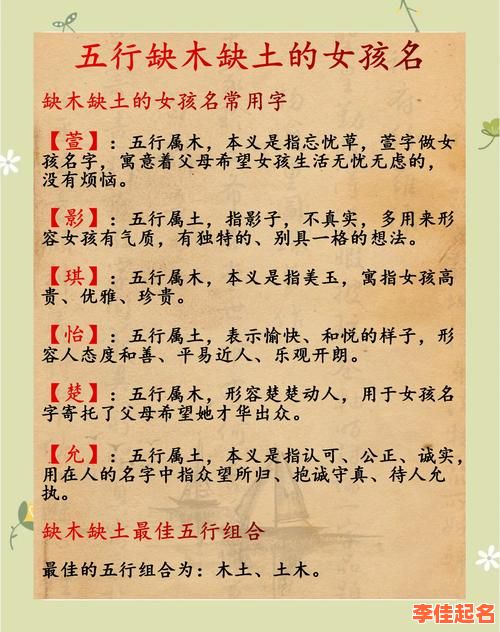 五行缺木缺土的女孩名
缺木缺土的女孩名常用字
【萱】：五行属木，本义是指忘忧草，萱字做女
孩名字，寓意着父母希望女孩生活无忧无虑的，
没有烦恼。
【影】：五行属土，指影子，不真实，多用来形
容女孩有气质，有独特的、别具一格的想法。
【琪】：五行属木，本义是指美玉，寓指女孩高
贵、优雅、珍贵。
【怡】：五行属土，表示愉快、和悦的样子，形
容人态度和善、平易近人、乐观开朗。
【楚】：五行属木，形容楚楚动人，用于女孩名
字寄托了父母希望她才华出众。
【允】：五行属土，本义是指认可、公正、诚实，
用在人的名字中指众望所归、抱诚守真、待人允
执。
缺木缺土最佳五行组合
最佳的五行组合为：木土、土木。
李佳起名